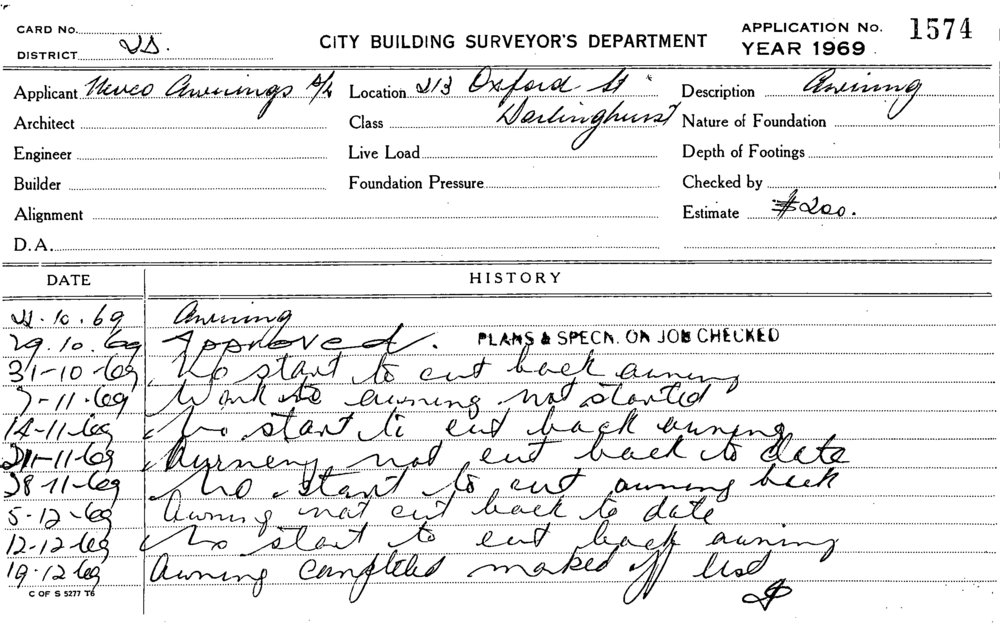 CARD No.
DISTRICT
CITY BUILDING SURVEYOR'S DEPARTMENT
APPLICATION No. 1574
YEAR 1969
Applicant Awnings P/L Location 213 Oxford St Description Awning
Architect Class Darlinghurst Nature of Foundation
Engineer Live Load Depth of Footings
Builder Foundation Pressure Checked by
Alignment Estimate $200.
D.A.
DATE HISTORY
10.69 Awning
29.10.69 Approved. PLANS & SPECN. ON JOB CHECKED
31-10-69 No start to cut back awning
7-11-69 Work to awning not started
14-11-69 No start to cut back awning
21-11-69 not cut back to date
28-11-69 No start to cut awning back
5-12-69 Awning not cut back to date
12-12-69 No start to cut back awning
19-12-69 Awning completed marked off list
C OF S 5277 T6